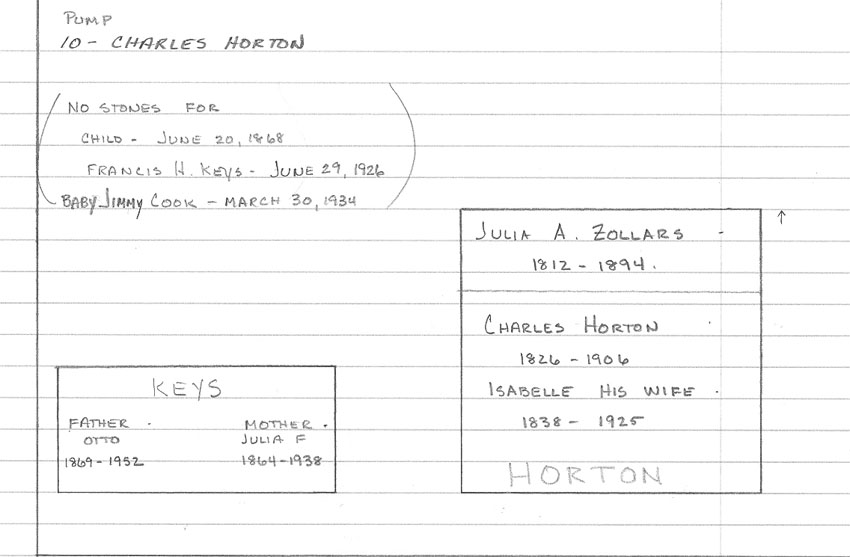 PUMP
10 - CHARLES HORTON
NO STONES FOR
CHILD - JUNE 20, 1868
FRANCIS H. KEYS - JUNE 29, 1926
BABY JIMMY COOK - MARCH 30, 1934
JULIA A. ZOLLARS -
1812 - 1894.
CHARLES HORTON
1826 - 1906
ISABELLE HIS WIFE .
1838 - 1925
HORTON
KEYS
FATHER . MOTHER .
OTTO JULIA F
1869 - 1952 1864 - 1938